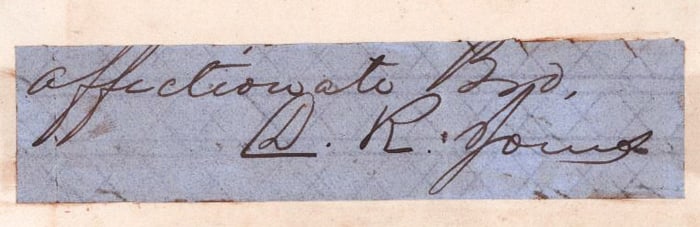 affectionate Bro,
D. R. Jones